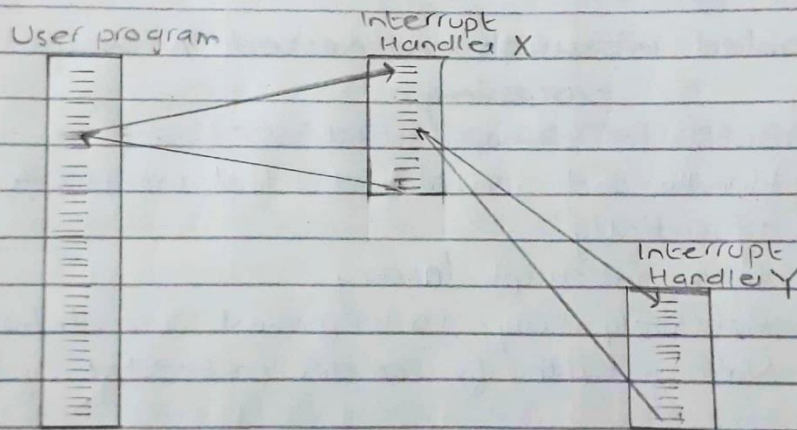 User program
Interrupt
Handler X
Interrupt
Handler Y